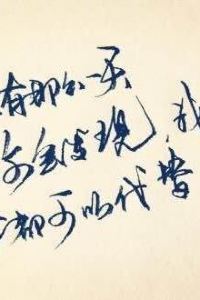 有那么一天
会发现，我
都可以代替